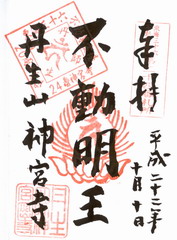 奉拝
平成二十二年
十月十日
不動明王
丹生山
神宮寺